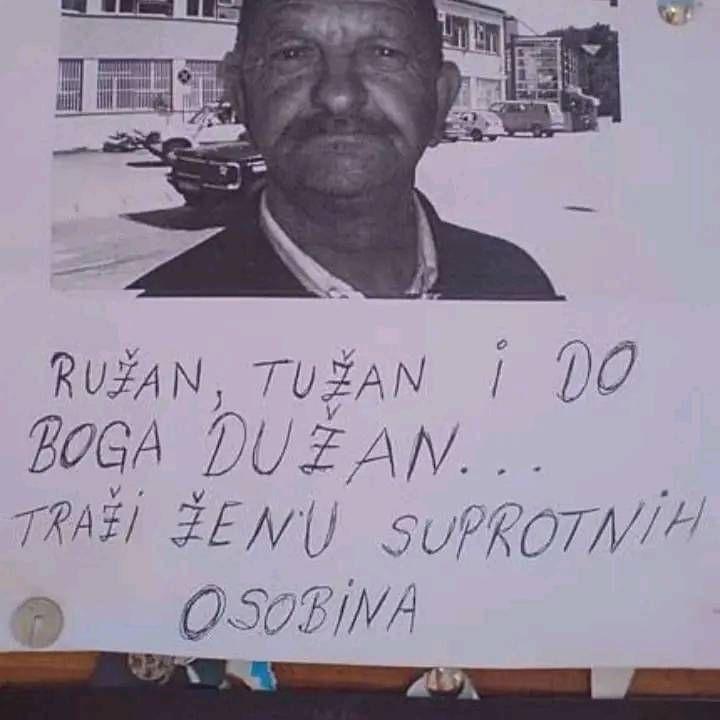 RUŽAN, TUŽAN i DO
BOGA DUŽAN...
TRAŽi ŽENU SUPROTNiH
OSOBiNA